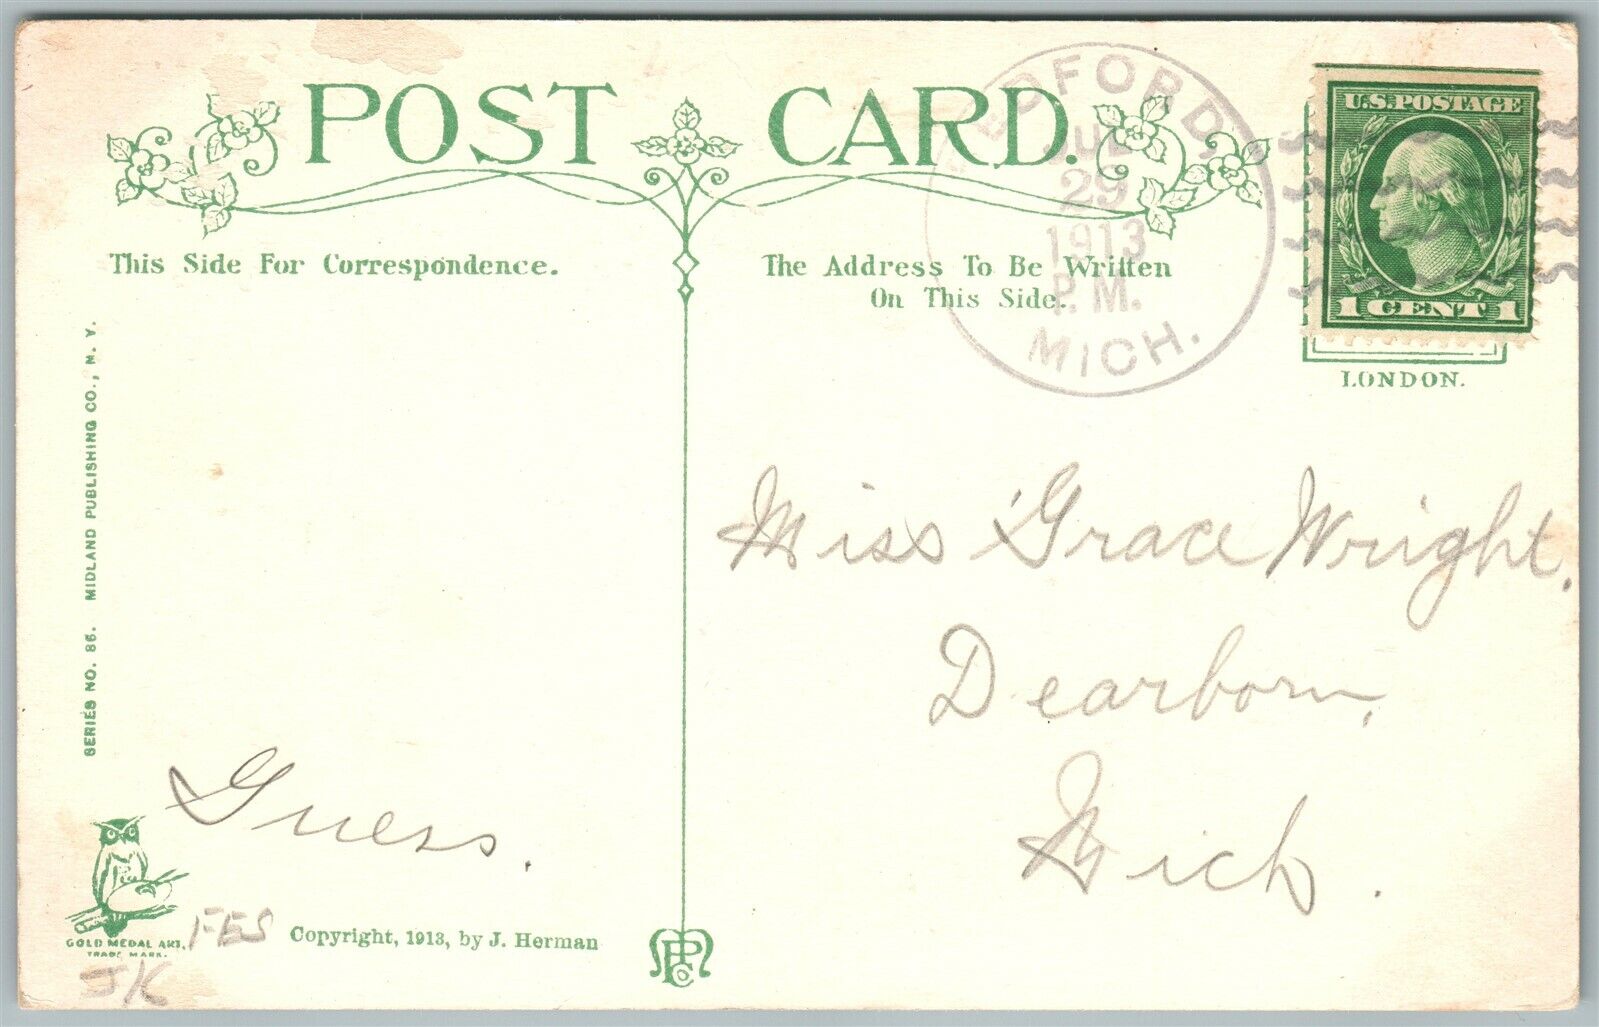 POST CARD.
This Side For Correspondence.
The Address To Be Written
On This Side.
EDFORD,
JUL
29
1913
P.M.
MICH.
U.S. POSTAGE
1 CENT 1
LONDON.
SERIES NO. 86. MIDLAND PUBLISHING CO., N. Y.
Miss Grace Wright,
Dearborn,
Mich.
Guess.
GOLD MEDAL ART.
TRADE MARK.
FES
JK
Copyright, 1913, by J. Herman
MPCo